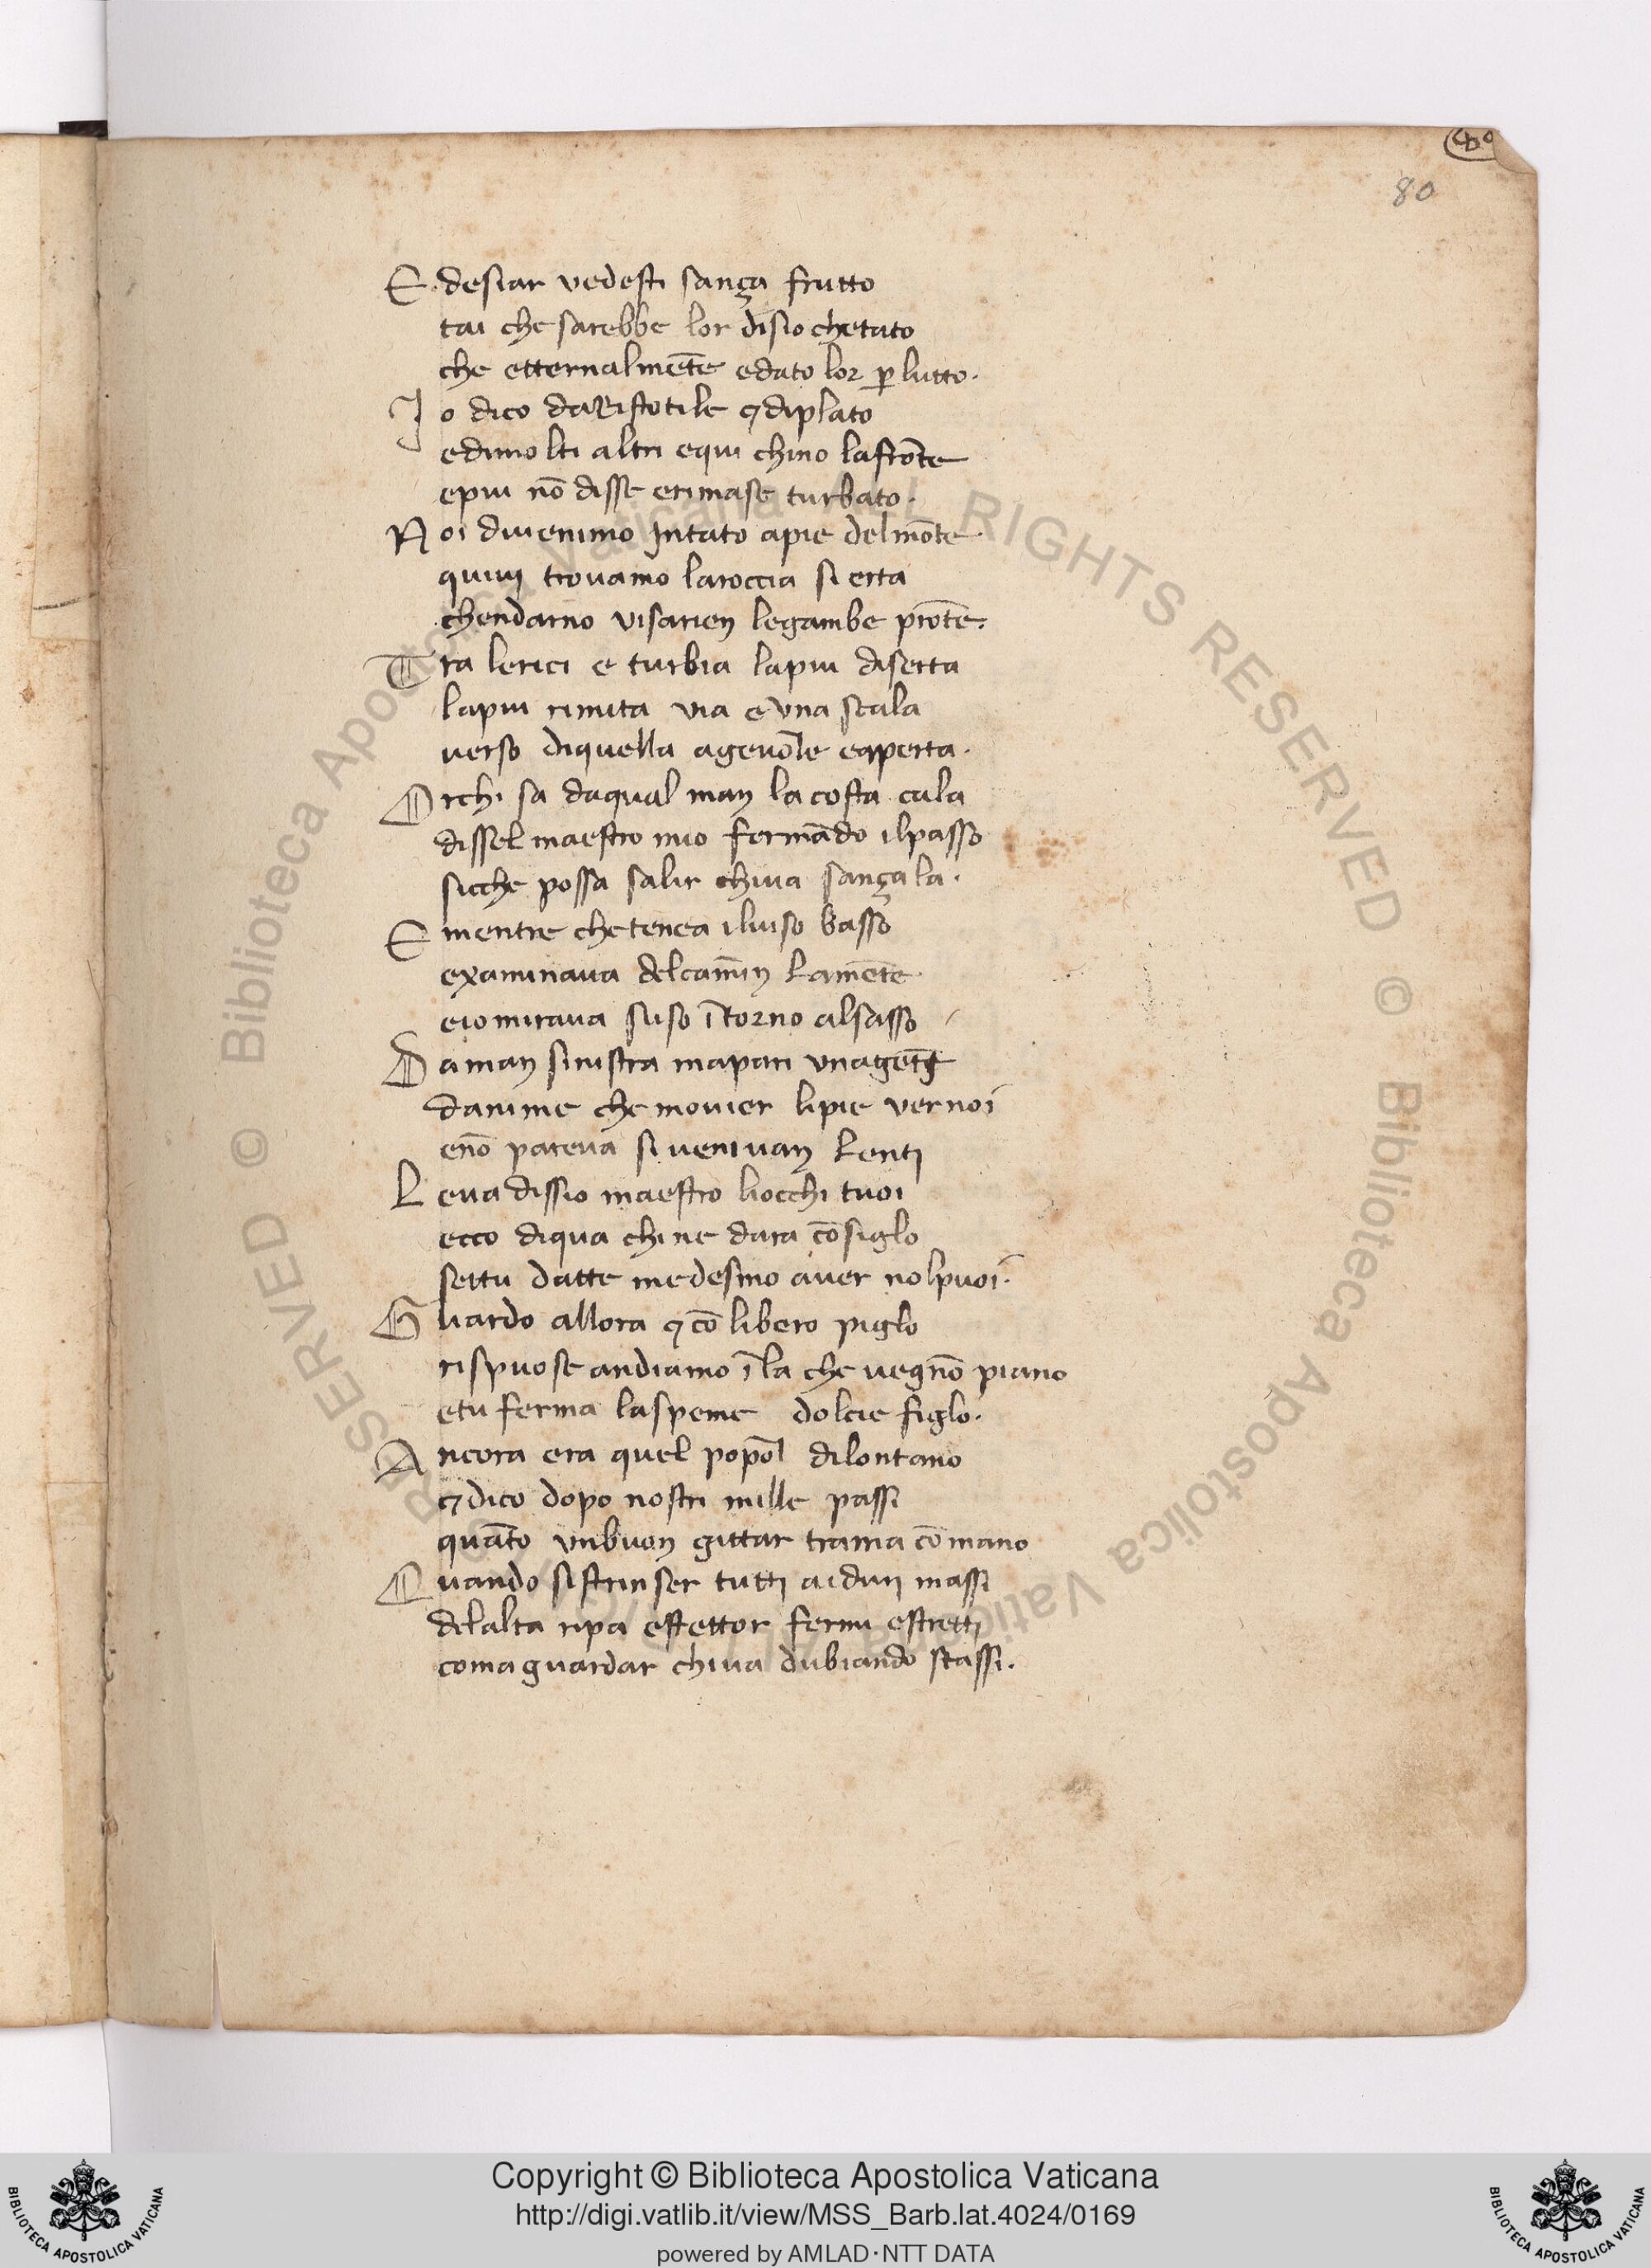 80
E desiar vedesti sança frutto
tai che sarebbe lor disio chetato
che etternalmēte edato lor ꝑ lutto.
Jo dico daristotile ⁊ diplato
edimolti altri equi chino lafrōte
epiu nō disse erimase turbato.
Noi divenimo Jntāto apie delmōte
quivi trovamo laroccia si erta
chendarno visarien legambe prōte.
Tra lerici e turbia lapiu diserta
lapiu rimita via e vna scala
verso diquella agevole eaperta.
Orchi sa daqual man la costa cala
dissel maestro mio fermādo ilpasso
sicche possa salir chiva sançala.
E mentre chetenea ilviso basso
examinava delcamin lamēte
eio mirava suso ītorno alsasso
Da man sinistra mapari vnagēte
danime che movier lipie ver noi
enō pareva si venivan lenti
Leva dissio maestro liocchi tuoi
ecco diqua chi ne dara cōsiglo
settu datte medesmo aver nolpuoi.
Guardo allora ⁊ cō libero piglo
rispuose andiamo ī la che vegnō piano
etu ferma laspeme dolcie figlo.
Ancora era quel popol dilontano
⁊ dico dopo nostri mille passi
quāto vnbuon gittar traria cō mano
Quando sistrinser tutti aiduri massi
delalta ripa estettor fermi estretti
coma guardar chiva dubiando stassi.
© Biblioteca Apostolica Vaticana ALL RIGHTS RESERVED © Biblioteca Apostolica Vaticana ALL RIGHTS RESERVED
BIBLIOTECA APOSTOLICA VATICANA
Copyright © Biblioteca Apostolica Vaticana
http://digi.vatlib.it/view/MSS_Barb.lat.4024/0169
powered by AMLAD·NTT DATA
BIBLIOTECA APOSTOLICA VATICANA